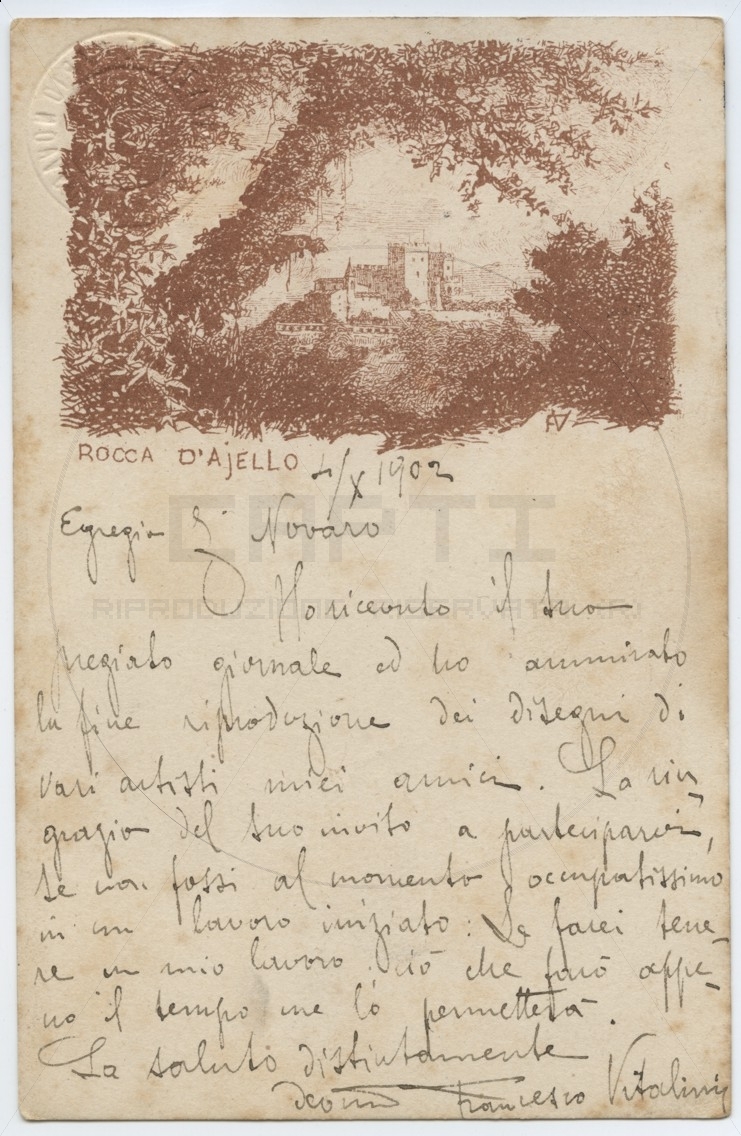 ROCCA D'AJELLO 4/X 1902
Egregio Sr Novaro
Ho ricevuto il suo
pregiato giornale ed ho ammirato
la fine riproduzione dei disegni di
vari artisti miei amici. La rin-
grazio del suo invito a parteciparvi,
se non fossi al momento occupatissimo
in un lavoro iniziato: Le farei tene-
re un mio lavoro. Ciò che farò appe-
na il tempo me lo permetterà.
La saluto distintamente
devmo Francesco Vitalini
CAPTI
RIPRODUZIONE RISERVATA